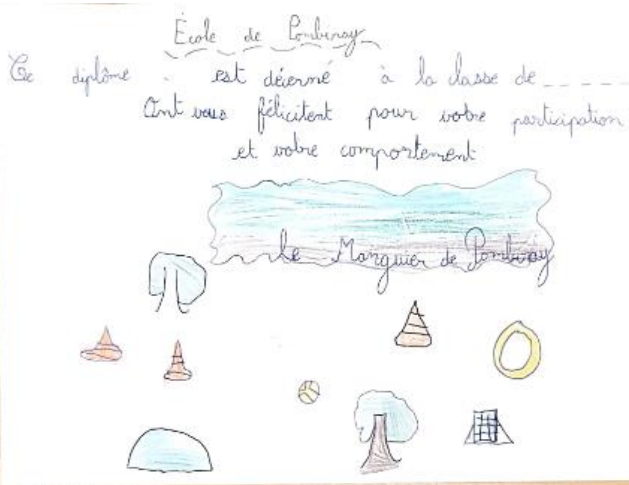 École de Pombiray
Ce diplôme est décerné à la classe de _ _ _ _ _
Ont vous félicitent pour votre participation
et votre comportement
Le Manguier de Pombiray